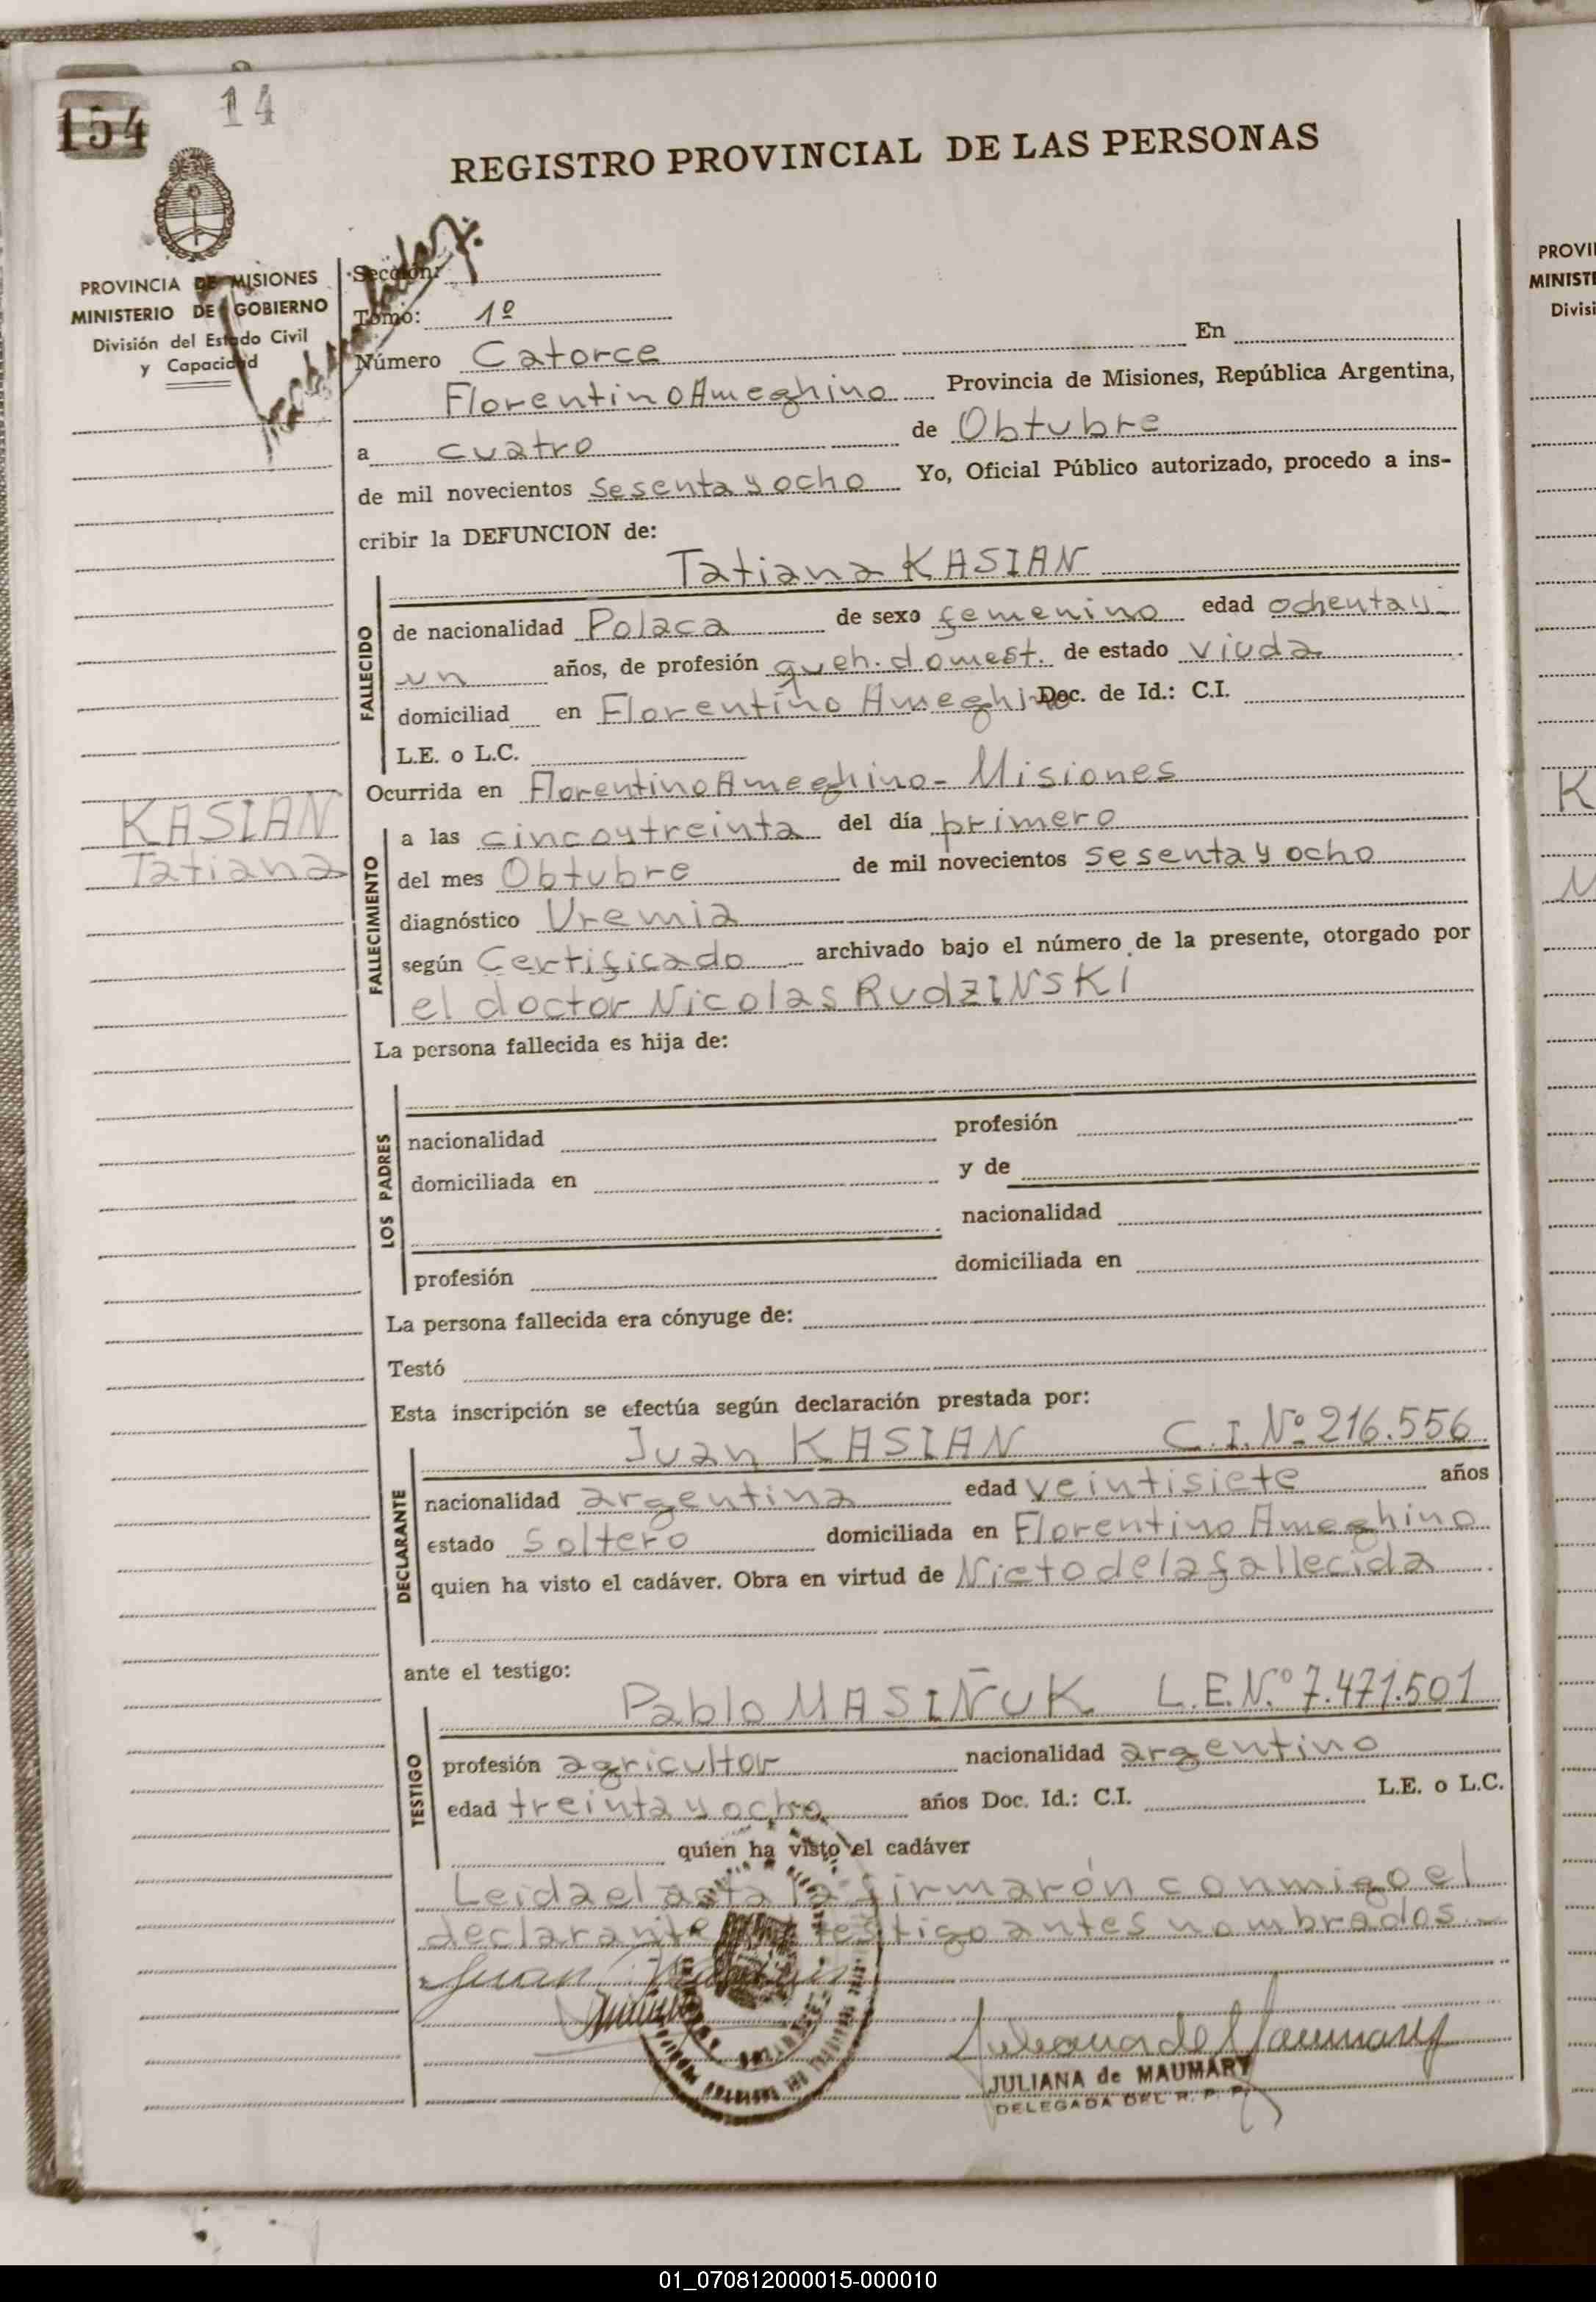 154 14
REGISTRO PROVINCIAL DE LAS PERSONAS
PROVINCIA DE MISIONES
MINISTERIO DE GOBIERNO
División del Estado Civil
y Capacidad
Sección:
Tomo: 1º
Número Catorce En
Florentino Ameghino Provincia de Misiones, República Argentina,
a cuatro de Obtubre
de mil novecientos sesenta y ocho Yo, Oficial Público autorizado, procedo a ins-
cribir la DEFUNCION de:
Tatiana KASIAN
FALLECIDO
de nacionalidad Polaca de sexo femenino edad ochenta y
un años, de profesión queh. domest. de estado viuda
domiciliad en Florentino Ameghino Doc. de Id.: C.I.
L.E. o L.C.
Ocurrida en Florentino Ameghino - Misiones
KASIAN
Tatiana
FALLECIMIENTO
a las cinco y treinta del día primero
del mes Obtubre de mil novecientos sesenta y ocho
diagnóstico Uremia
según Certificado archivado bajo el número de la presente, otorgado por
el doctor Nicolas RUdZINSKI
La persona fallecida es hija de:
LOS PADRES
nacionalidad profesión
domiciliada en y de
nacionalidad
profesión domiciliada en
La persona fallecida era cónyuge de:
Testó
Esta inscripción se efectúa según declaración prestada por:
Juan KASIAN C.I. Nº 216.556
DECLARANTE
nacionalidad argentina edad veintisiete años
estado Soltero domiciliada en Florentino Ameghino
quien ha visto el cadáver. Obra en virtud de Nieto de la fallecida
ante el testigo:
Pablo MASIÑUK L.E.N.º 7.471.501
TESTIGO
profesión agricultor nacionalidad argentino
edad treinta y ocho años Doc. Id.: C.I. L.E. o L.C.
quien ha visto el cadáver
Leida el acta la firmarón conmigo el
declarante testigo antes nombrados.-
Juan
Juliana de Maumary
JULIANA de MAUMARY
DELEGADA DEL R. P. P.
PROVI
MINISTE
Divisi
K
01_070812000015-000010